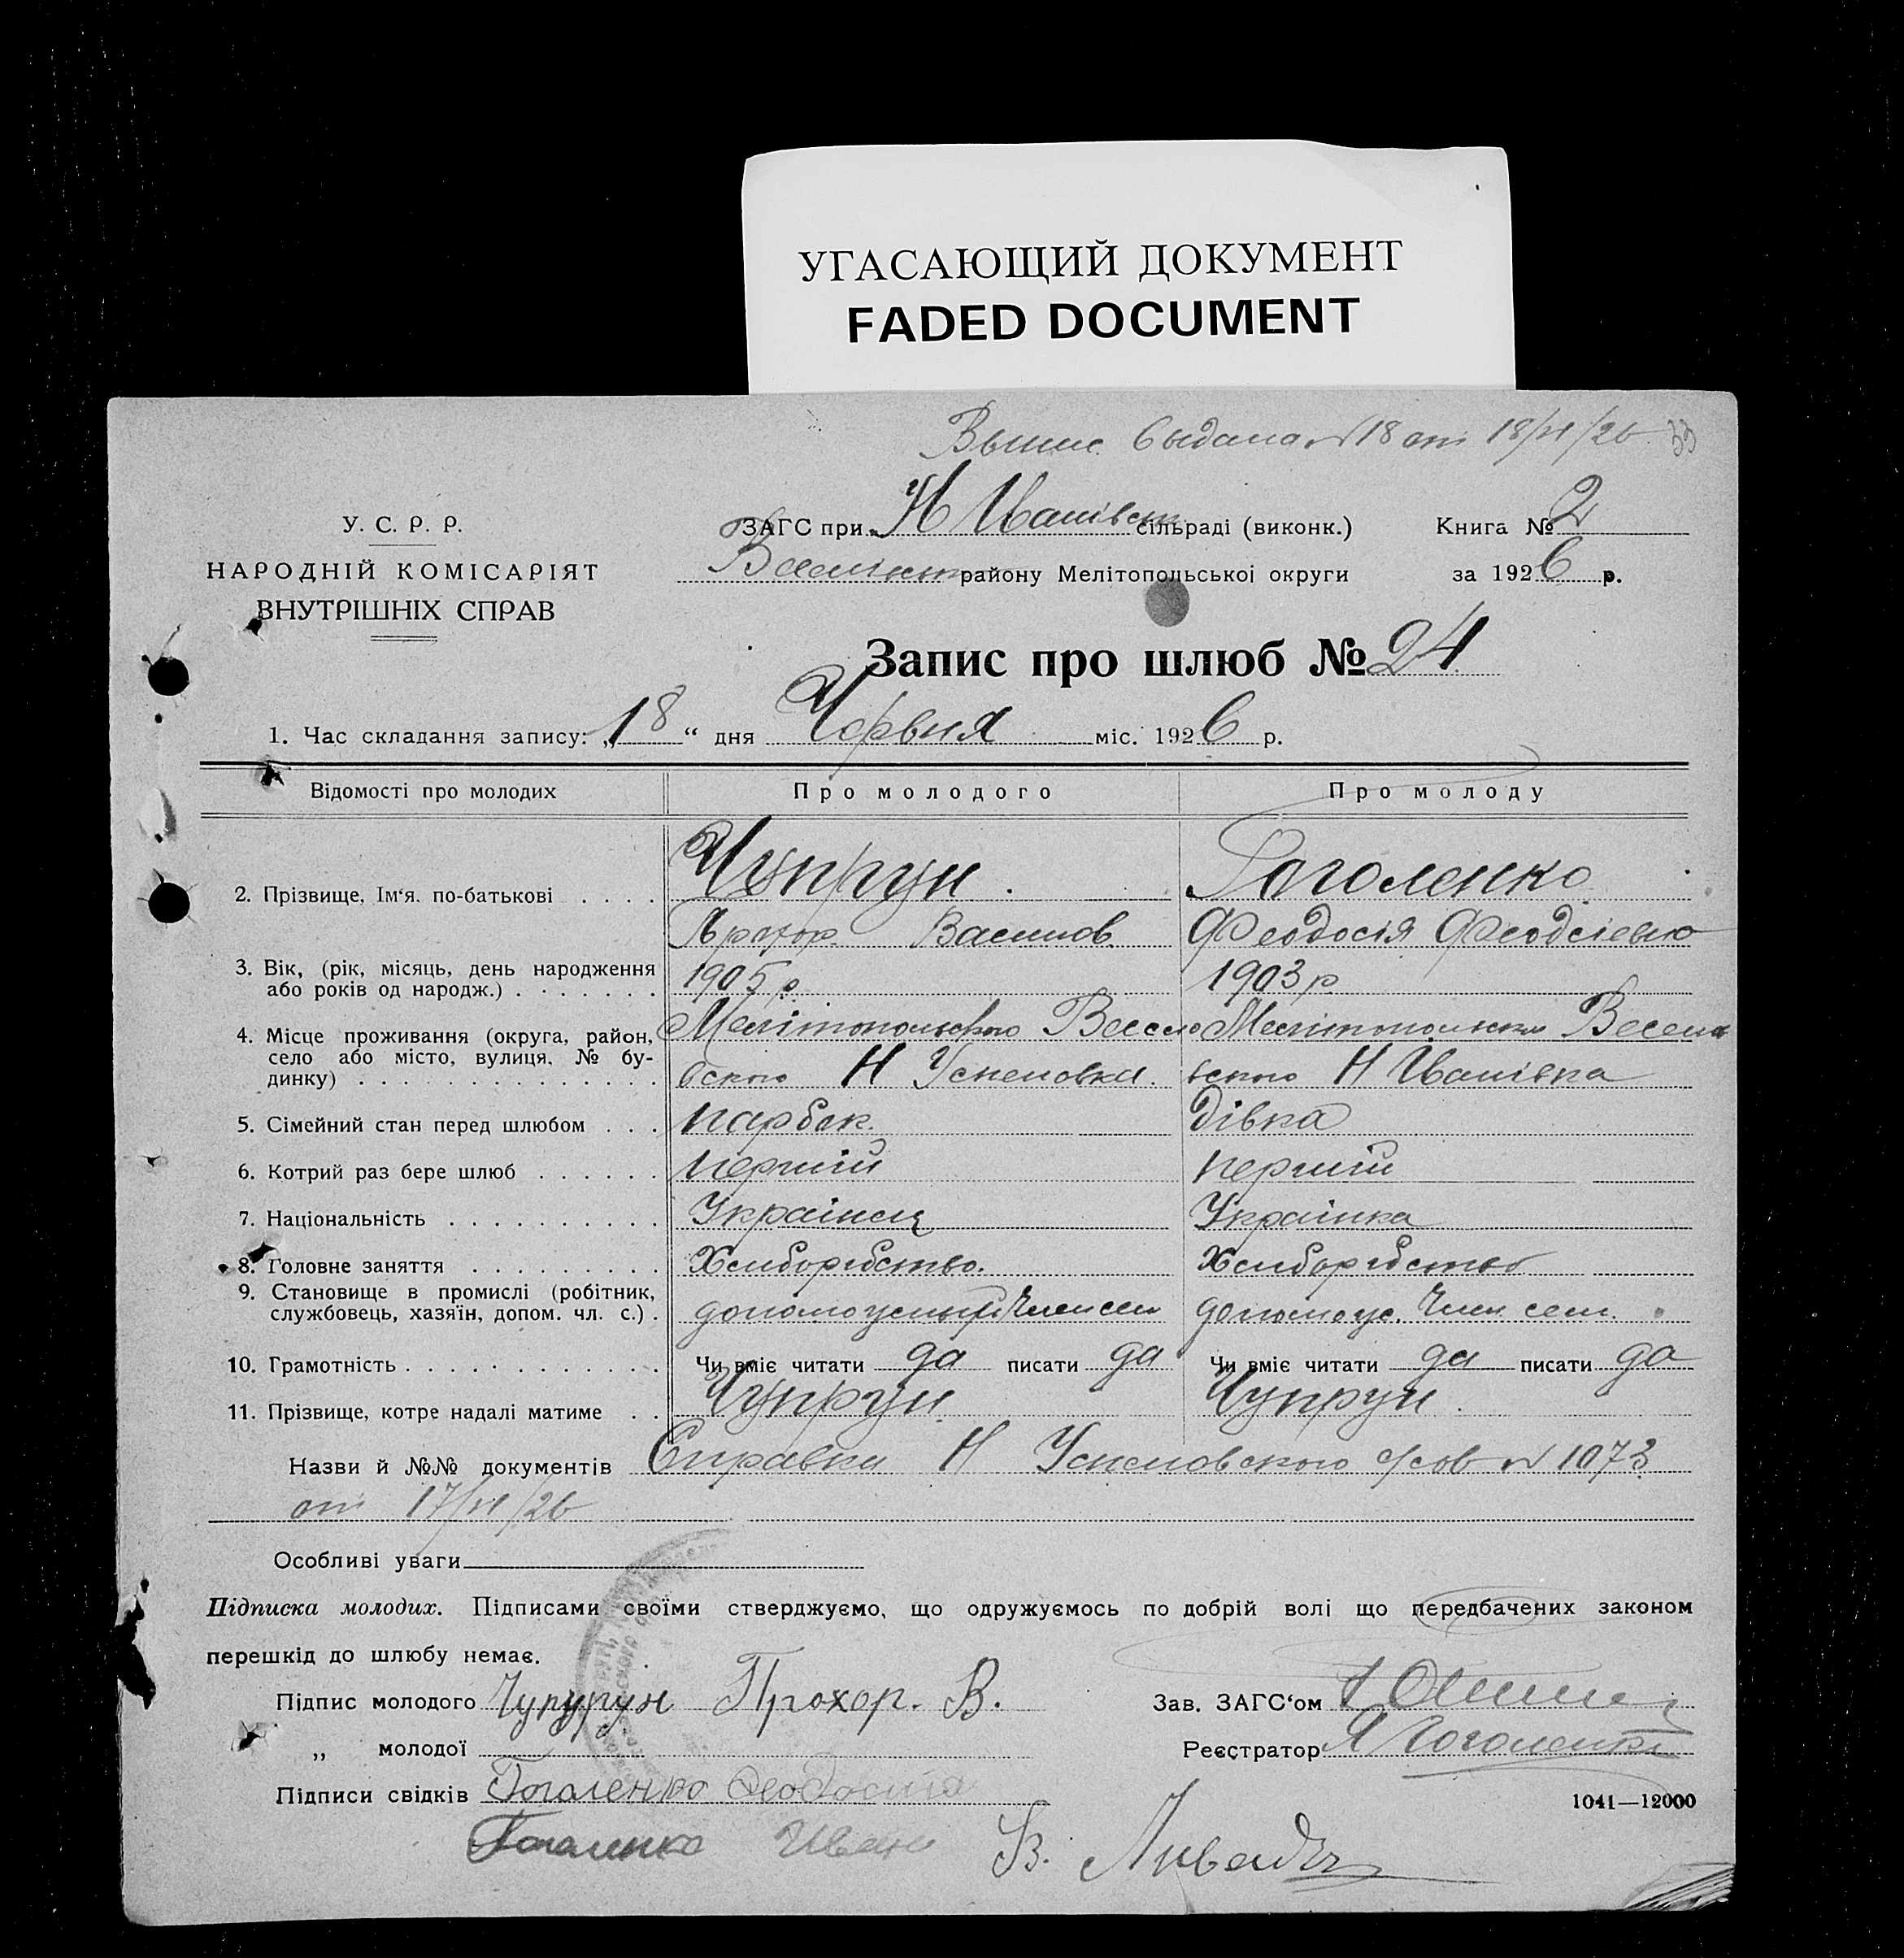 УГАСАЮЩИЙ ДОКУМЕНТ
FADED DOCUMENT
Выпис. выдана № 18 от 18/VI/26 33
У. С. Р. Р.
НАРОДНІЙ КОМІСАРІЯТ
ВНУТРІШНІХ СПРАВ
ЗАГС при Н Іванівськ сільраді (виконк.) Книга № 2
району Мелітопольської округи за 1926 р.
Запис про шлюб № 24
1. Час складання запису: „18“ дня Червня міс. 1926 р.
Відомості про молодих Про молодого Про молоду
2. Прізвище, Ім‘я, по-батькові . . . . Чупрун. Гоголенко
Прохор Васильов. Феодосія Феодсіевна
3. Вік, (рік, місяць, день народження
або років од народж.) . . . . . . . 1905 р. 1903 р
4. Місце проживання (округа, район,
село або місто, вулиця, № бу-
динку) . . . . . . . . . . . . . .
Мелітопольского Весело Мелітопольськ Весели
вского Н Успеновка. вского Н Іванівка
5. Сімейний стан перед шлюбом . . . парбок. дівка
6. Котрий раз бере шлюб . . . . . . перший перший
7. Національність . . . . . . . . . . Українец Українка
8. Головне заняття . . . . . . . . . Хлиборобство. Хлиборобство
9. Становище в промислі (робітник,
службовець, хазяїн, допом. чл. с.) . Член сем допомоус. Член сем.
10. Грамотність . . . . . . . . . . . . Чи вміє читати да писати да Чи вміє читати да писати да
11. Прізвище, котре надалі матиме . . Чупрун Чупрун.
Назви й №№ документів Справка Н Успеновского с/сов № 1073
от 17/VI/26
Особливі уваги
Підписка молодих. Підписами своїми стверджуємо, що одружуємось по добрій волі що передбачених законом
перешкід до шлюбу немає.
Підпис молодого Чупурун Прохор. В. Зав. ЗАГС‘ом
„ молодої Реєстратор Я Гоголенко
Підписи свідків Гогаленко Феодосия
1041—12000
Гогаленко Иван В.